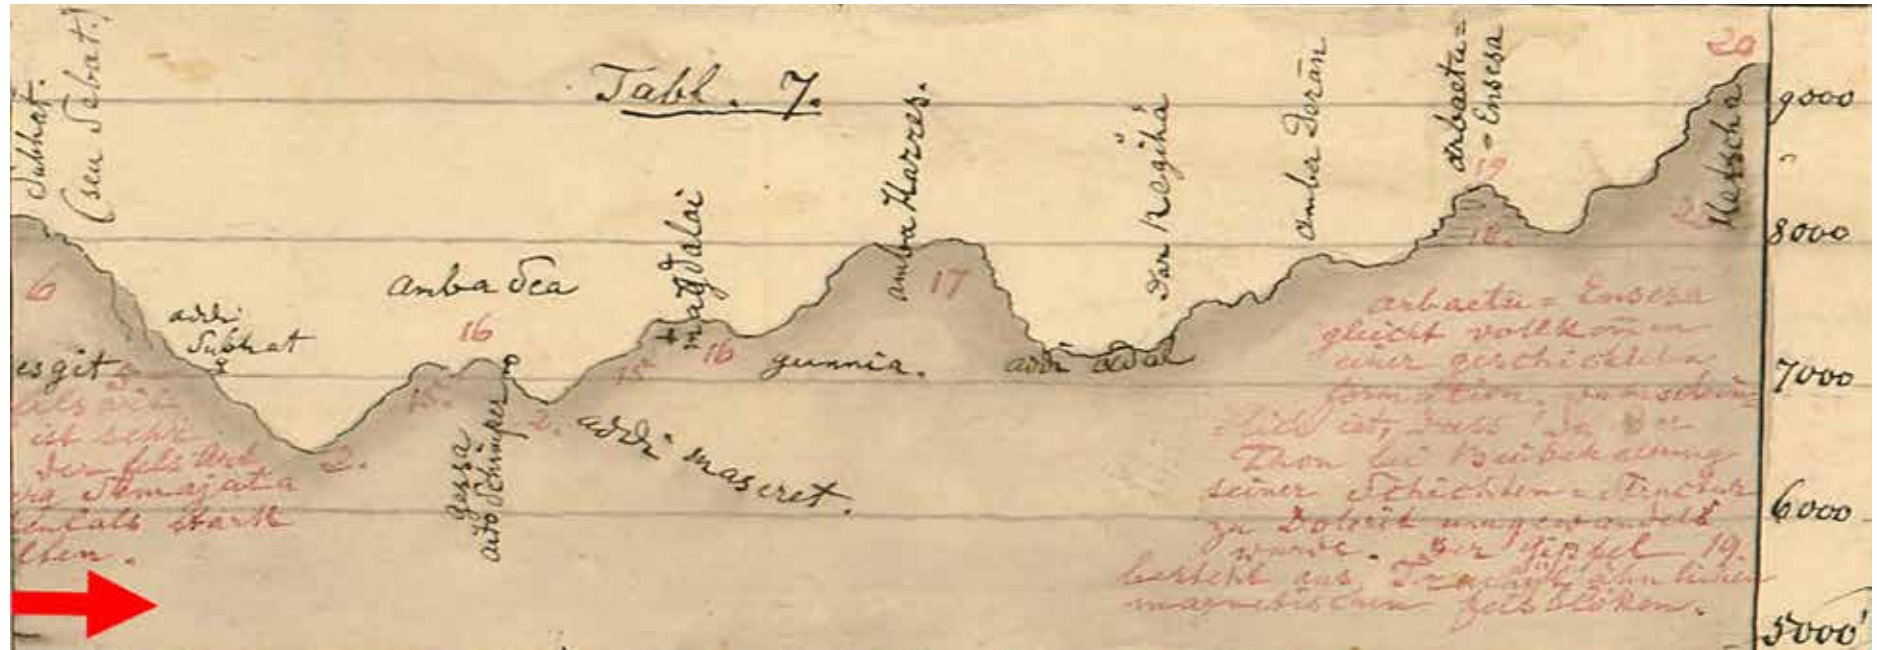 Tabl. 7.
Subhat.
(seu Sebat.)
6
addi
Subhat
esgit
amba Sea
16
15
gessa
auto Schimper
2.
2.
addi mascret.
magdalai
15
16
amba Harres.
17
gunnia.
addi
Dar
amber Doran
arbaetu=
= Ensesa
19
18.
20
2
9000
8000
7000
6000
5000'
ist sehr
der fels art
Semajata
stark
arbaetu = Ensesa
gleicht vollkomen
einer geschichteten
formation,
=lich ist, dass da der
Thon bei
seiner Schichten = Structur
zu Dolerit umgewandelt
wurde. Der Gipfel 19.
besteht aus Trachyt ähnlichen
magnetischen felsblöken.